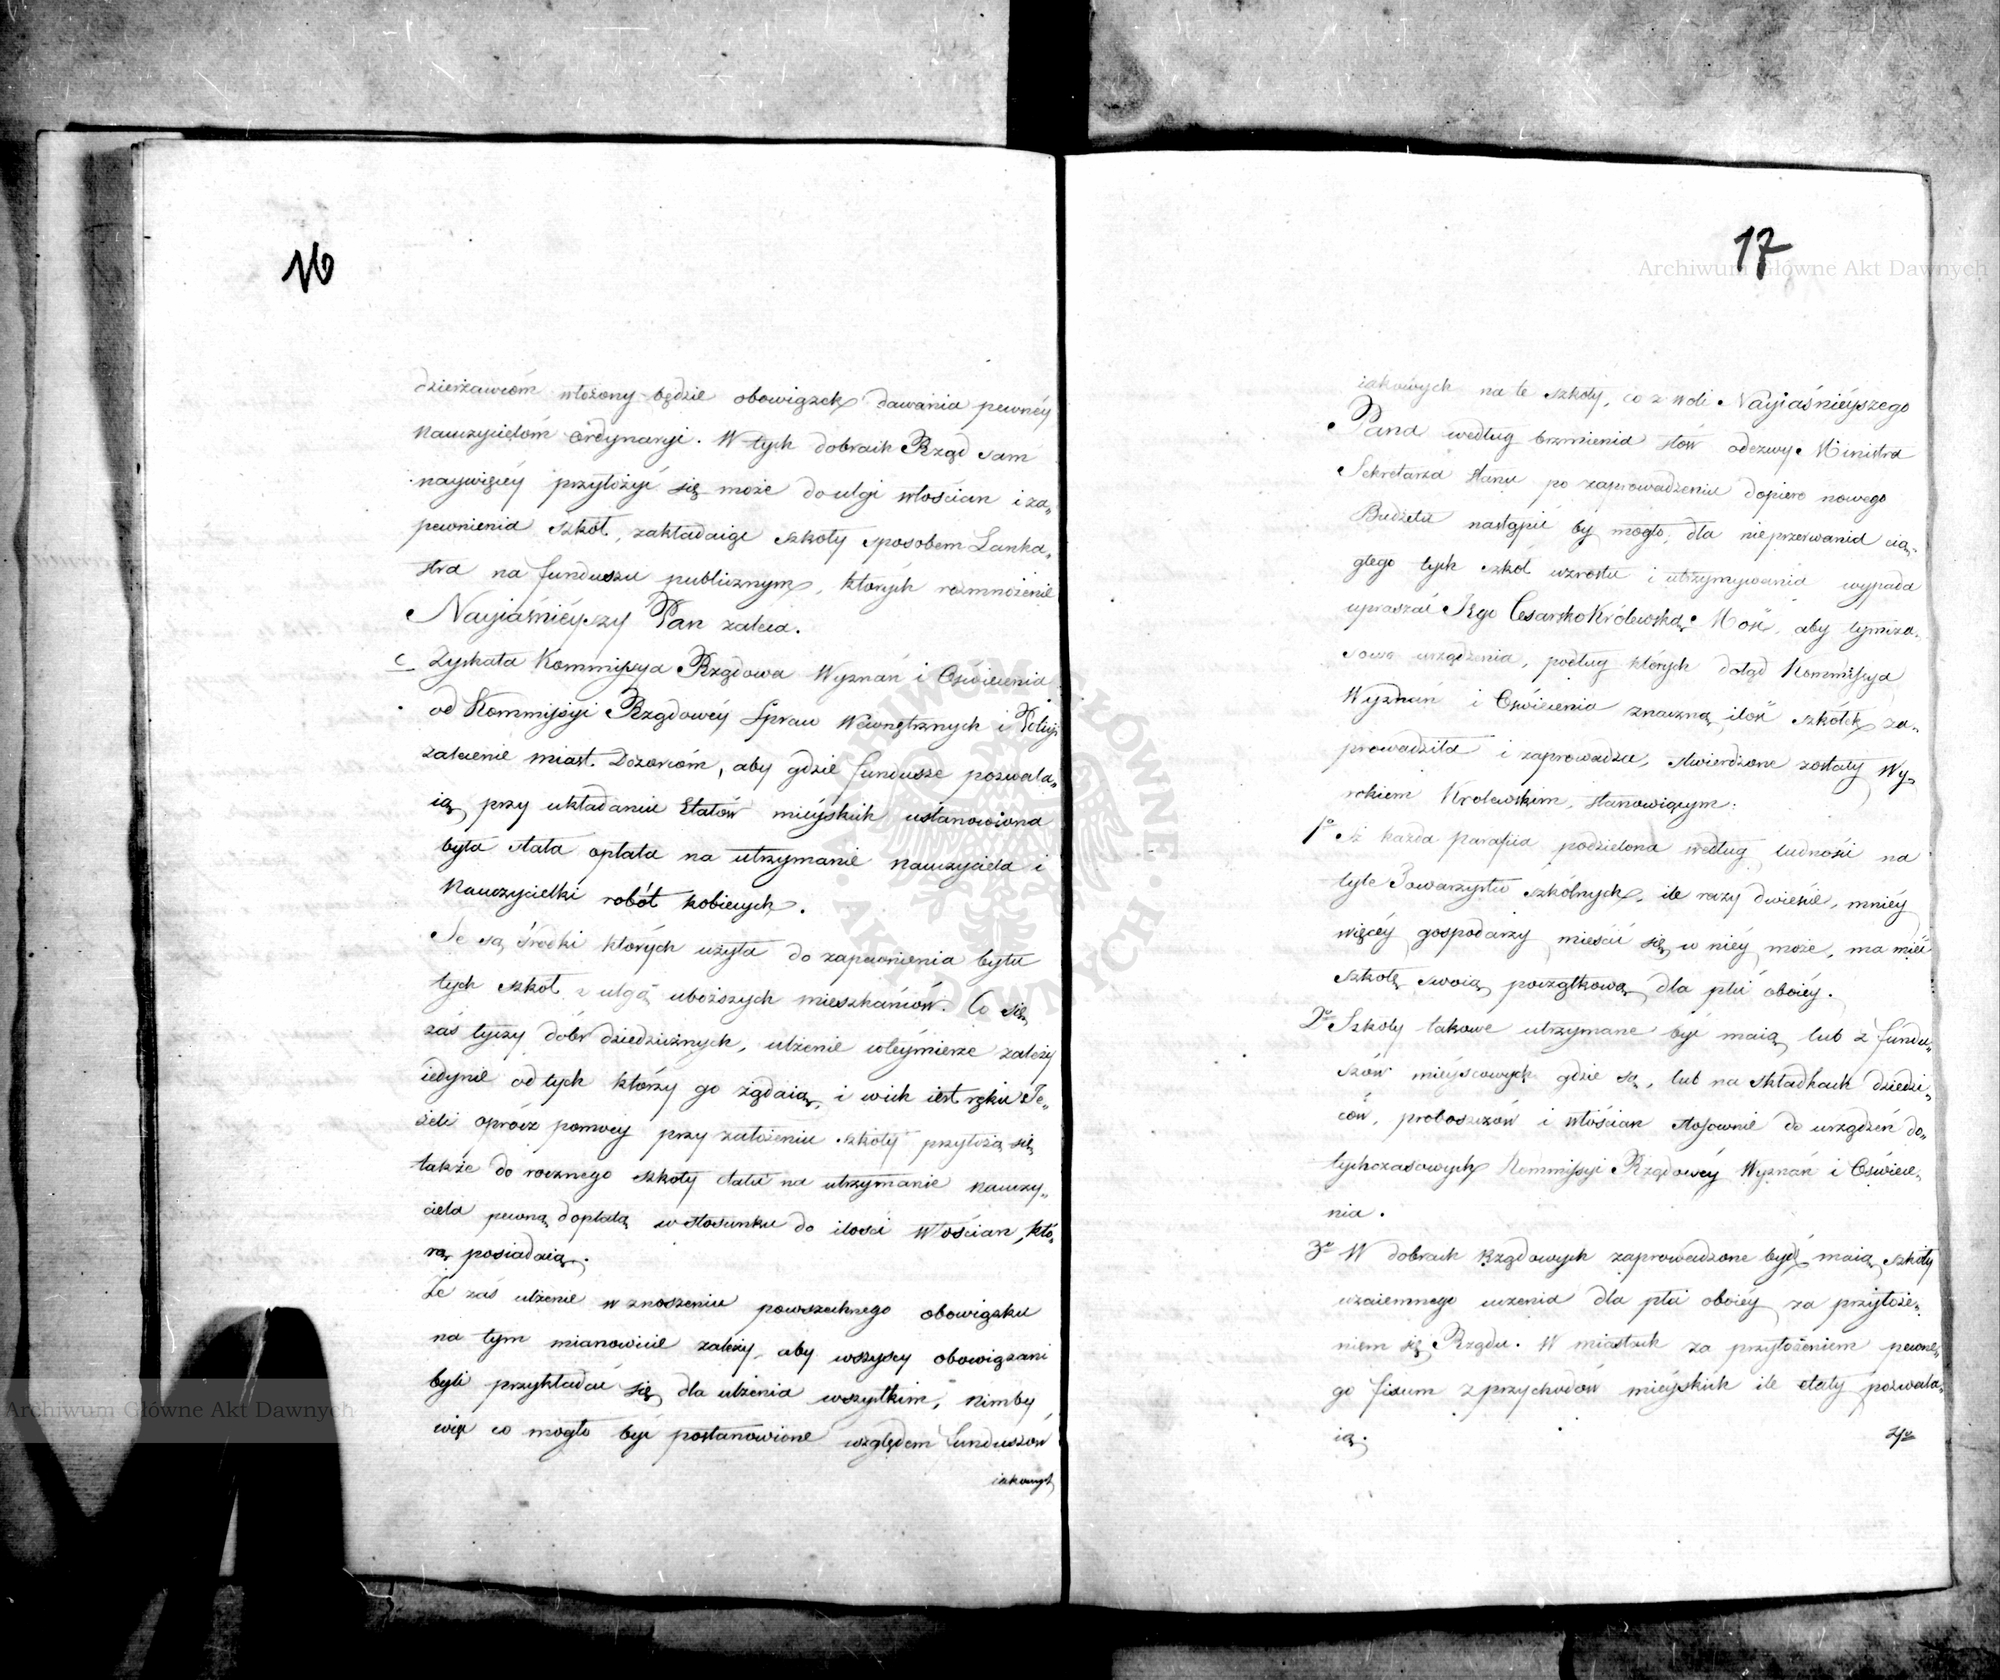 16
dzierżawcóm włożony będzie obowiązek dawania pewnéy
Nauczycielóm Ordynaryi. W tych dobrach Rząd sam
naywięcéy przyłożyć się może do ulgi włościan i za„
pewnienia szkół, zakładaiąc szkoły sposobem Lanka„
stra na funduszu publicznym, których rozmnożenie
Nayiaśniéyszy Pan zaleca.
c Zyskała Kommissya Rządowa Wyznań i Oświecenia
od Kommissyi Rządowéy Spraw Wewnętrznych i Policyi
zalecenie miast. Dozorcóm, aby gdzie fundusze pozwala„
ią przy układaniu Etatów mieyskich ustanowiona
była stała opłata na utrzymanie nauczyciela i
Nauczycielki robót kobiecych.
Te są środki których użyła do zapewnienia bytu
tych szkół z ulgą uboższych mieszkańców. Co się
zaś tyczy dóbr dziedzicznych, ulżenie w téymierze zależy
iedynie od tych którzy go żądaią, i w ich iest ręku Je„
żeli oprócz pomocy przy założeniu szkoły przyłożą się
także do rocznego szkoły etatu na utrzymanie nauczy„
ciela pewną dopłatą w stosunku do ilości Włościan, któ„
rą posiadaią.
Że zaś ulżenie w znoszeniu powszechnego obowiązku
na tym mianowicie zależy, aby wszyscy obowiązani
byli przykładać się dla ulżenia wszystkim, nimby
więc co mogło być postanowione względem funduszów
iakowych
17
iakowych na te szkoły, co z woli Nayiaśniéyszego
Pana według brzmienia słów odezwy Ministra
Sekretarza Stanu po zaprowadzeniu dopiero nowego
Budżetu nastąpić by mogło, dla nieprzerwania cią„
głego tych szkół wzrostu i utrzymywania wypada
upraszać Jego Cesarsko Królewską Mość, aby tymcza„
sowe urządzenia, podług których dotąd Kommissya
Wyznań i Oświecenia znaczną ilość szkółek za„
prowadziła i zaprowadza, stwierdzone zostały Wy„
rokiem Królewskim, stanowiącym:
1o Iż każda Parafiia podzielona według ludności na
tyle Towarzystw szkólnych, ile razy dwieście, mniéy
więcéy gospodarzy mieścić się w niéy może, ma mieć
szkołę swoią początkową dla płci oboiéy.
2o Szkoły takowe utrzymane być maią lub z fundu„
szów mieyscowych gdzie są, lub na składkach dziedzi„
ców, proboszczów i włościan stosownie do urządzeń do„
tychczasowych Kommissyi Rządowéy Wyznań i Oświece„
nia.
3o W dobrach Rządowych zaprowadzone bydź maią szkoły
wzaiemnego uczenia dla płci oboiéy za przyłoże„
niem się Rządu. W miastach za przyłożeniem pewne„
go fixum z przychodów mieyskich ile etaty pozwala„
ią.
4o
Archiwum Główne Akt Dawnych
Archiwum Główne Akt Dawnych
ARCHIWUM GŁÓWNE AKT DAWNYCH